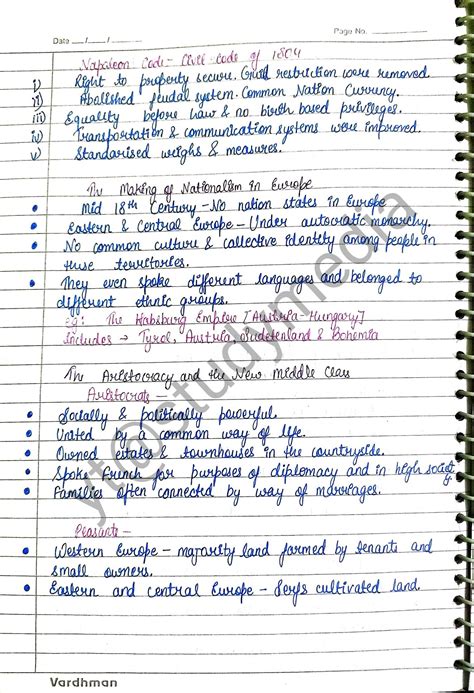 Date __/__/__
Page No.
Napoleon Code - Civil code of 1804
i) Right to property secure. Guild restriction were removed.
ii) Abolished feudal system. Common Nation Currency.
iii) Equality before law & no birth based privileges.
iv) Transportation & communication systems were improved.
v) Standarised weighs & measures.
The Making of Nationalism in Europe
• Mid 18th Century - No nation states in Europe
• Eastern & Central Europe - Under autocratic monarchy.
• No common culture & collective identity among people in
these territories.
• They even spoke different languages and belonged to
different ethnic groups.
eg: The Habsburg Empire [Austria-Hungary]
Includes → Tyrol, Austria, Sudetenland & Bohemia
The Aristocracy and the New Middle Class
Aristocrats -
• Socially & politically powerful.
• United by a common way of life.
• Owned estates & townhouses in the countryside.
• Spoke french for purposes of diplomacy and in high society
• Families often connected by way of marriages.
Peasants -
• Western Europe - majority land farmed by tenants and
small owners.
• Eastern and central Europe - Serfs cultivated land.
Vardhman
yt@studymedia